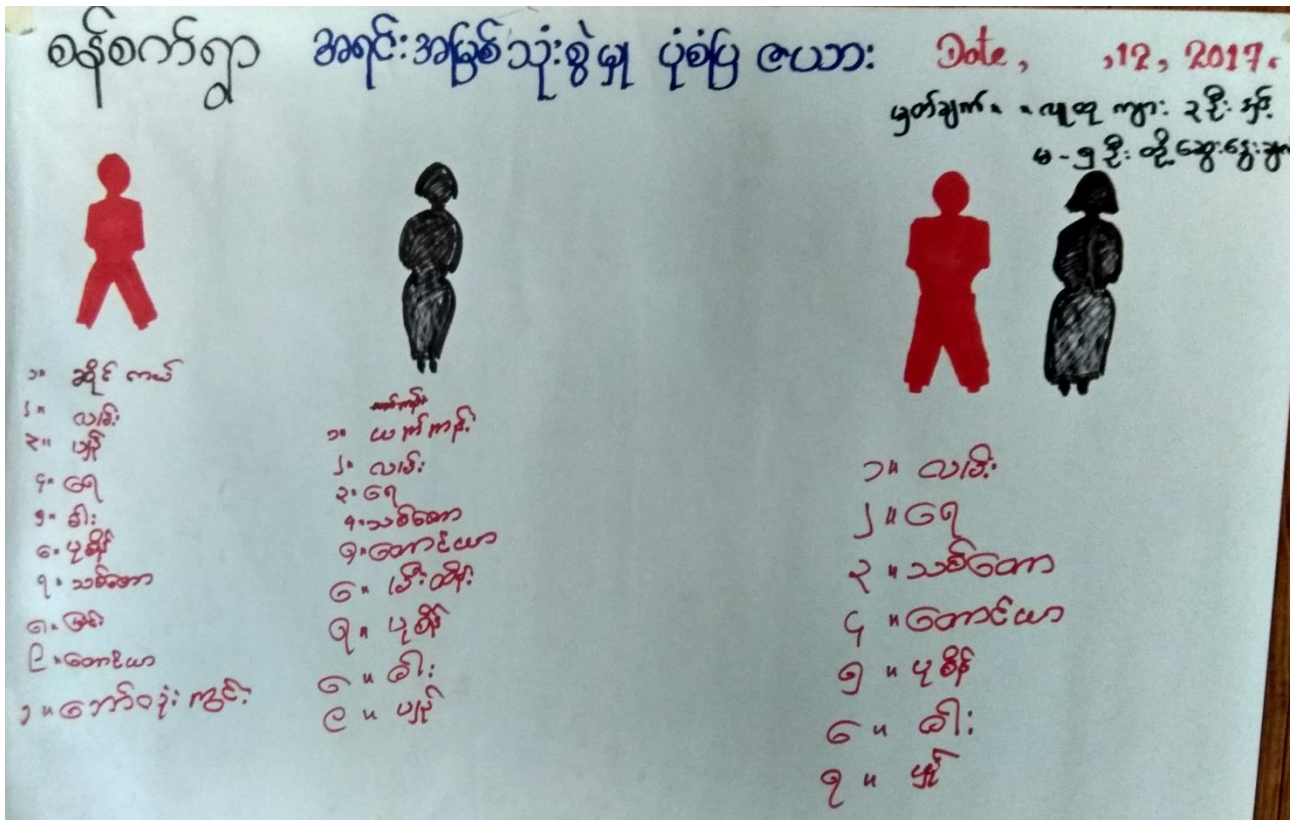 စန်စက်ရွာ အရင်းအမြစ်သုံးစွဲမှု ပုံစံပြ ဇယား Date, ,12, 2017.
မှတ်ချက်။ ။လူထု ကျား ၃ဦး နှင့်
မ - ၅ဦး တို့ဆွေးနွေးချက်
၁။ ဆိုင်ကယ်
၂။ လမ်း
၃။ ပျဉ်
၄။ ရေ
၅။ ဓါး
၆။ ပုစိန်
၇။ သစ်တော
၈။ မြင်း
၉။ တောင်ယာ
၁။ ဘော်လုံးကွင်း
၁။ ယက်ကန်း
၂။ လမ်း
၃။ ရေ
၄။ သစ်တော
၅။ တောင်ယာ
၆။
၇။ ပုစိန်
၈။ ဓါး
၉။ ပျဉ်
၁။ လမ်း
၂။ ရေ
၃။ သစ်တော
၄။ တောင်ယာ
၅။ ပုစိန်
၆။ ဓါး
၇။ ပျဉ်